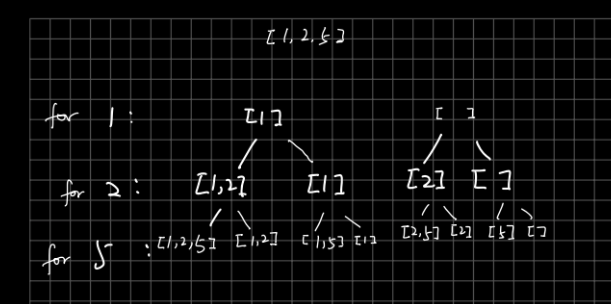 [1,2,5]
for 1: [1] [ ]
for 2: [1,2] [1] [2] [ ]
for 5: [1,2,5] [1,2] [1,5] [1] [2,5] [2] [5] [ ]